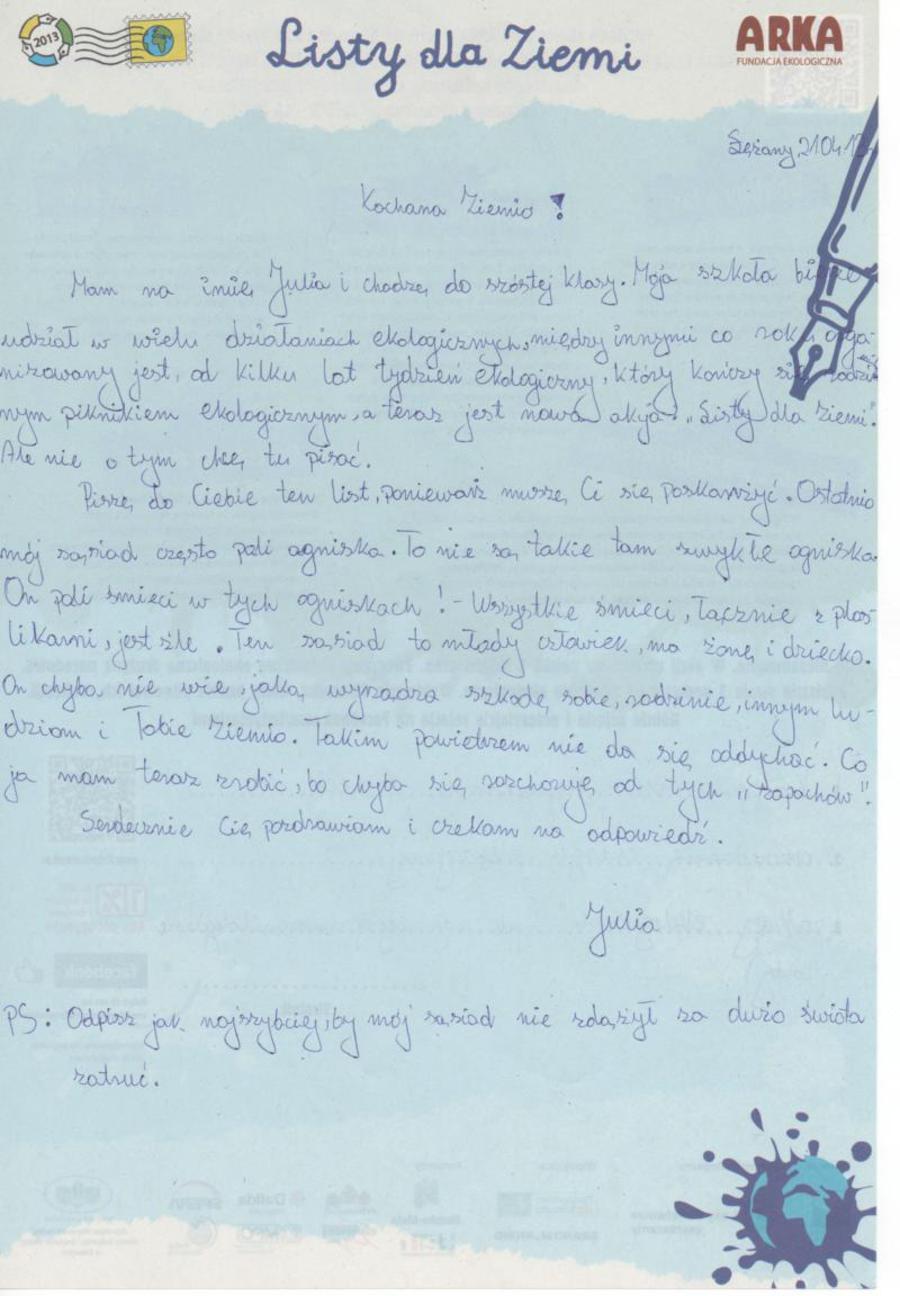 2013
Listy dla Ziemi
ARKA
FUNDACJA EKOLOGICZNA
21.04.13
Kochana Ziemio!
Mam na imię Julia i chodzę do szóstej klasy. Moja szkoła bierze
udział w wielu działaniach ekologicznych, między innymi co roku orga-
nizowany jest, od kilku lat tydzień ekologiczny, który kończy się rodzi
nnym piknikiem ekologicznym, a teraz jest nowa akcja: "Listy dla Ziemi".
Ale nie o tym chcę tu pisać.
Piszę do Ciebie ten list, ponieważ muszę Ci się poskarżyć. Ostatnio
mój sąsiad często pali ogniska. To nie są takie tam zwykłe ogniska.
On pali śmieci w tych ogniskach! - Wszystkie śmieci, łącznie z plas
tikami, jest źle. Ten sąsiad to młody człowiek, ma żonę i dziecko.
On chyba nie wie, jaką wyrządza szkodę sobie, rodzinie, innym lu-
dziom i Tobie Ziemio. Takim powietrzem nie da się oddychać. Co
ja mam teraz zrobić, bo chyba się rozchoruję od tych "zapachów".
Serdecznie Cię pozdrawiam i czekam na odpowiedź.
Julia
PS: Odpisz jak najszybciej, by mój sąsiad nie zdążył za dużo świata
zatruć.